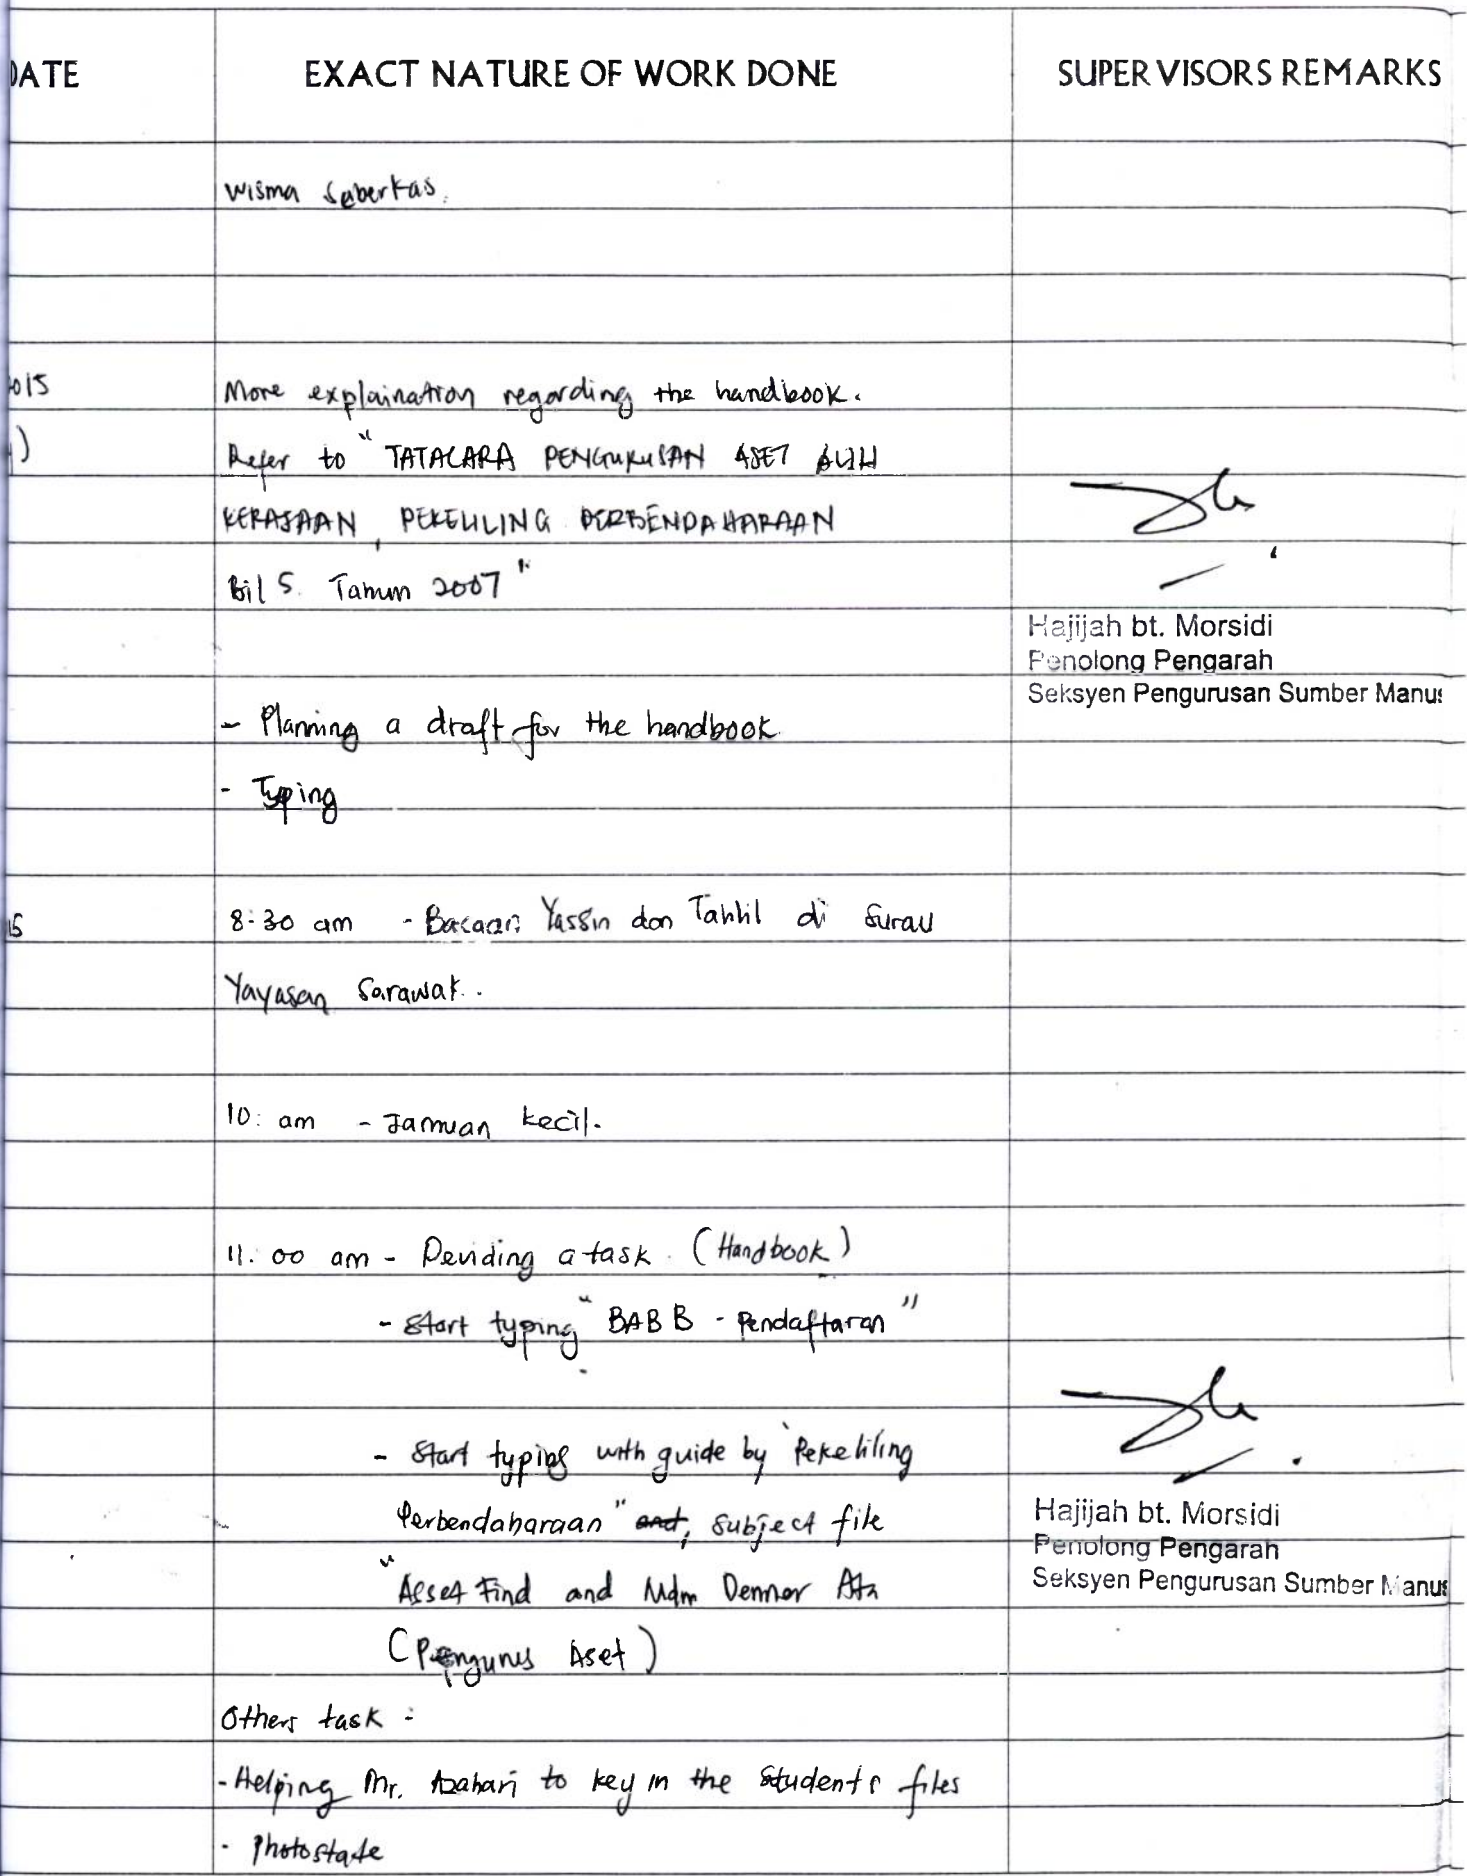 DATE EXACT NATURE OF WORK DONE SUPERVISORS REMARKS
Wisma Saberkas.
2015 More explaination regarding the handbook.
) Refer to "TATACARA PENGURUSAN ASET ALIH
KERAJAAN, PEKELILING PERBENDAHARAAN
Bil 5. Tahun 2007"
Hajijah bt. Morsidi
Penolong Pengarah
Seksyen Pengurusan Sumber Manus
- Planning a draft for the handbook
- Typing
15 8:30 am - Bacaan Yassin dan Tahlil di Surau
Yayasan Sarawak.
10: am - Jamuan kecil.
11.00 am - Deviding a task. (Handbook)
- Start typing "BAB B - Pendaftaran"
- Start typing with guide by 'Pekeliling
Perbendaharaan" and, subject file
"Asset Find and Mdm Dennor
(Pengurus Aset)
Hajijah bt. Morsidi
Penolong Pengarah
Seksyen Pengurusan Sumber Manus
Others task :
- Helping Mr. Azahari to key in the students files
- Photostate